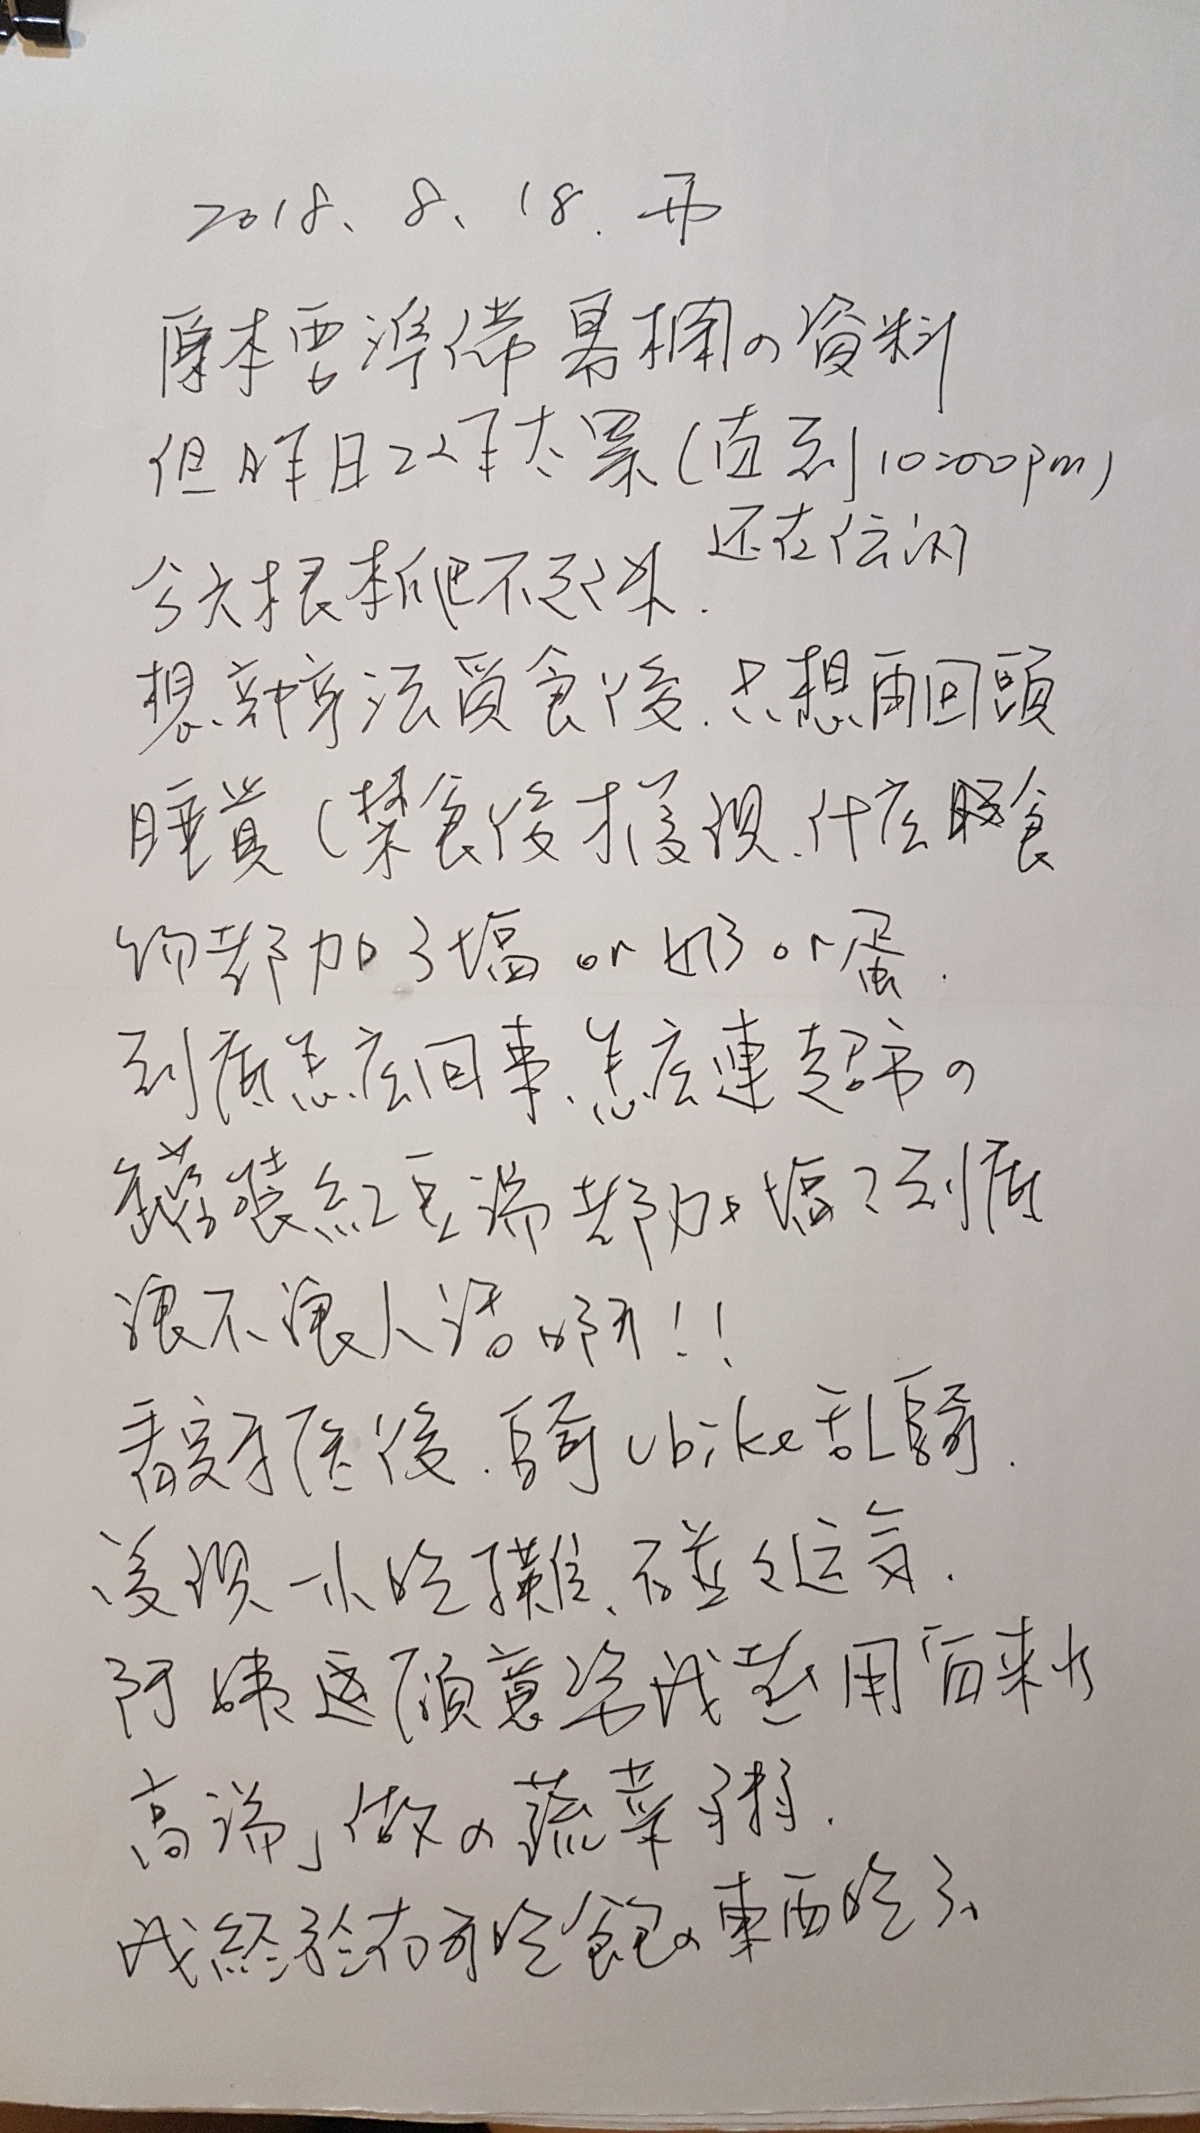 2018、8、18. 再
原本要準備專欄の資料
但昨日工作太累(直到10:00pm)
还在信闪
今天根本爬不起來.
想辦法買食後、只想再回頭
睡覺(禁食後才發現、什麼食
物都加了塩 or 奶 or 蛋.
到底怎么回事、怎么連超市の
罐装紅豆湯都加塩?到底
讓不讓人活啊!!
看完牙医後、騎ubike乱騎.
發現一小吃攤、去碰々运気.
阿姨还願意給我煮用「自來水
高湯」做の蔬菜粥.
我終於有可吃飽の東西吃了